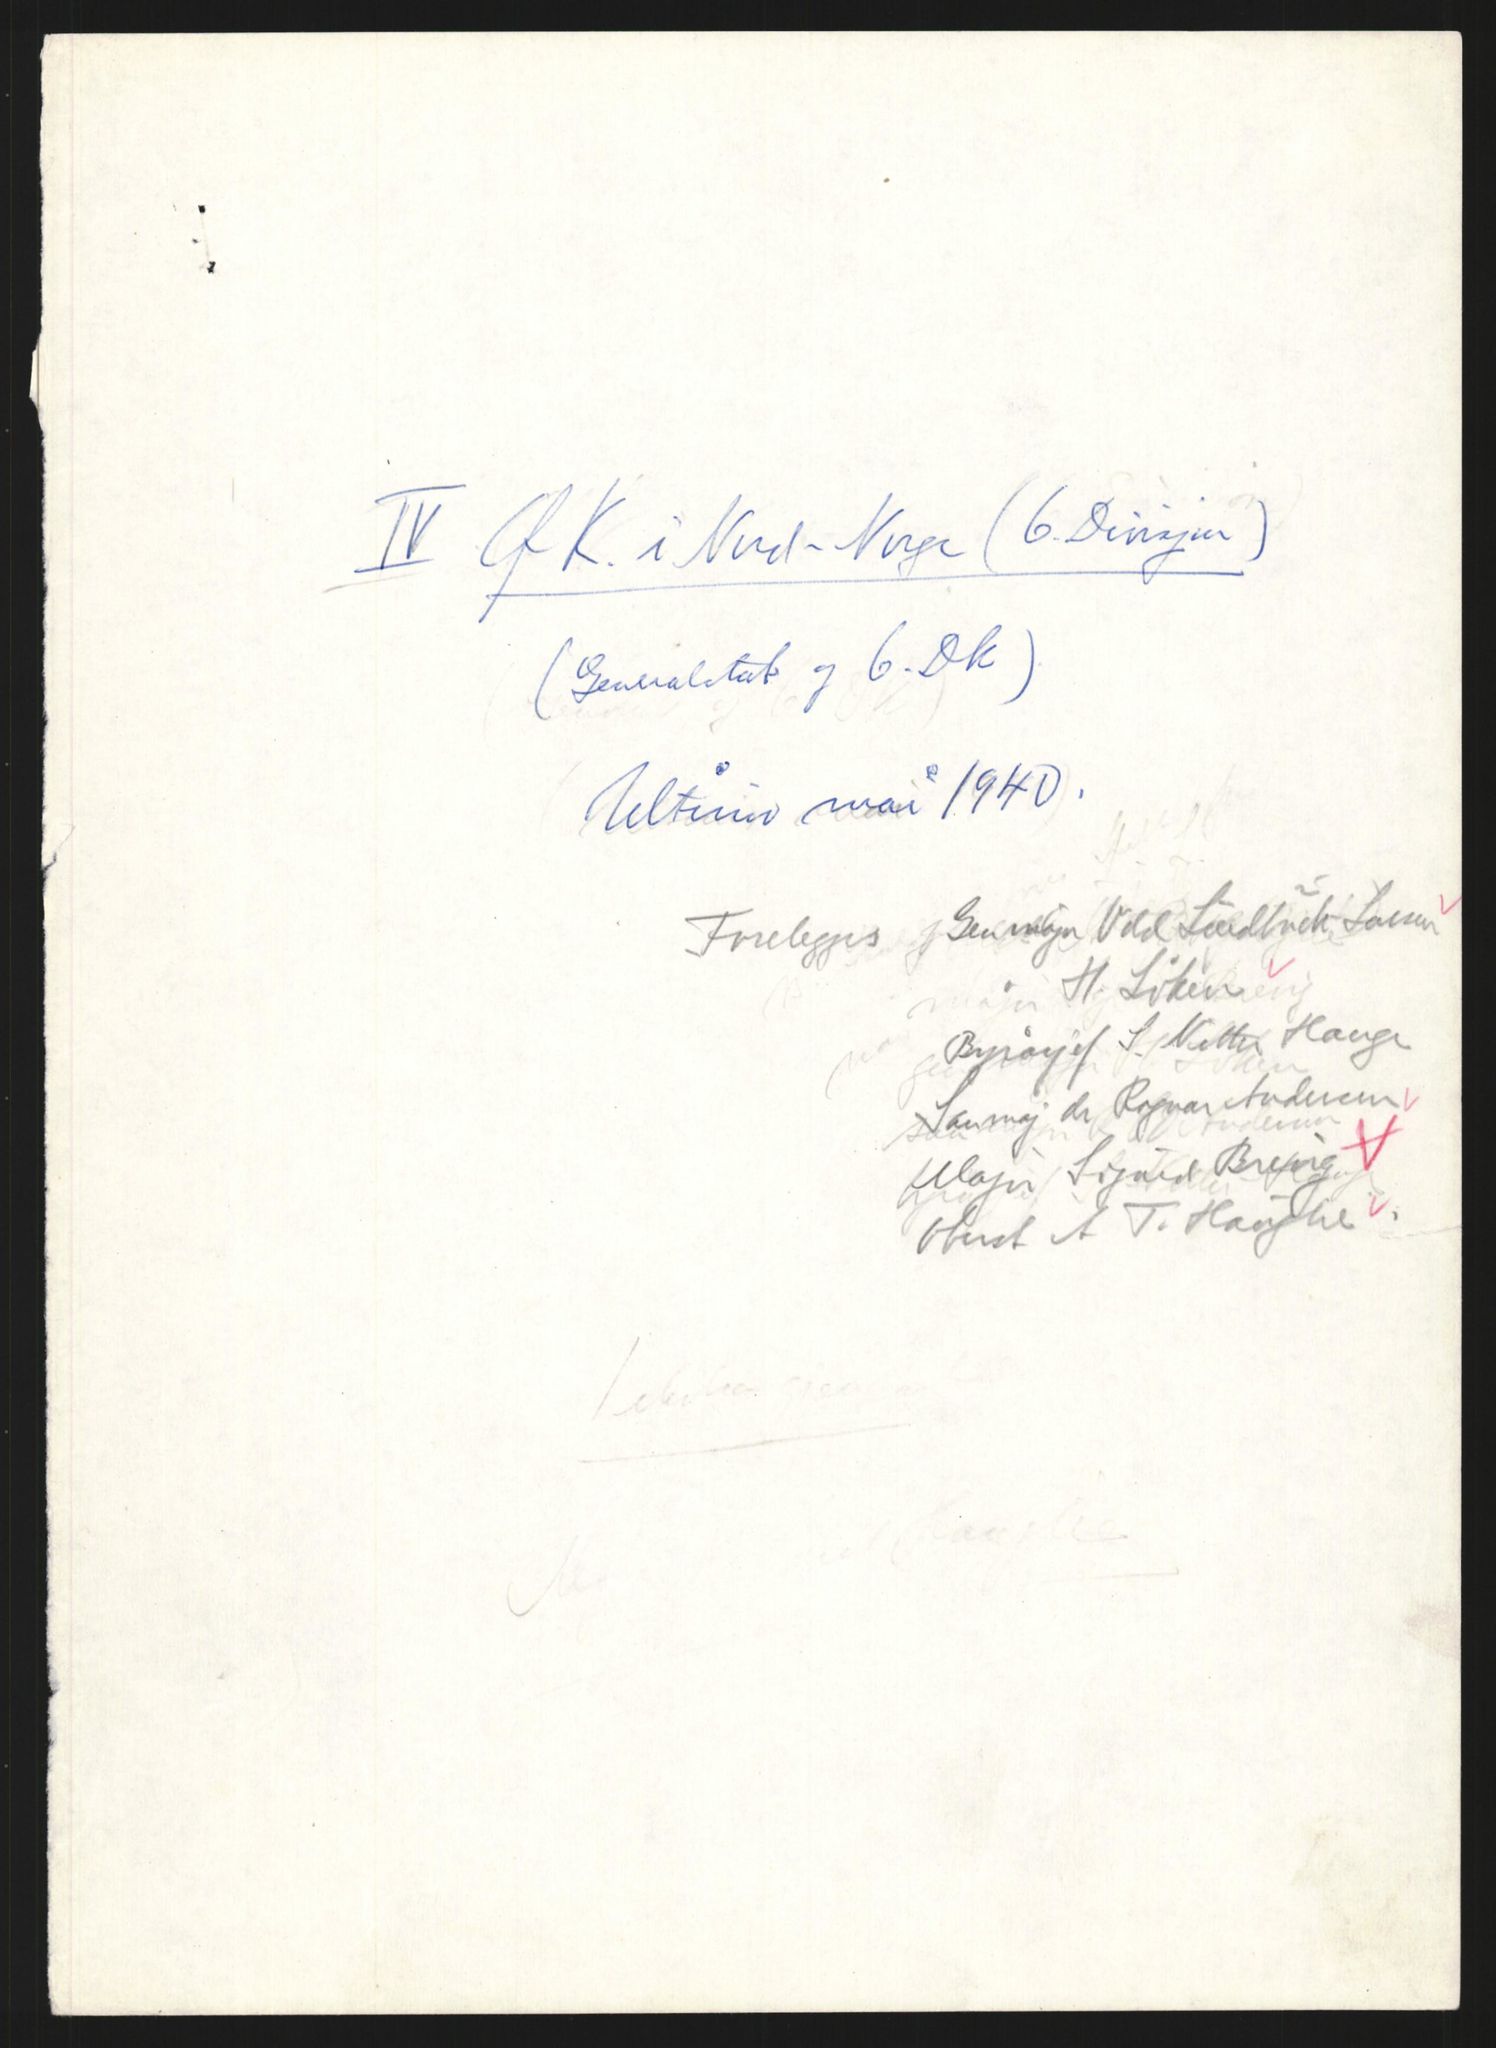 IV ØK. i Nord-Norge (6. Divisjon)
(Generalstab og 6. DK)
Ultimo mai 1940.
Forelegges Genmajor Odd Lindbäck-Larsen
H. Löken
Byråsjef S. Netter Hauge
Sanmaj dr Ragnar Andersen
Major Sigurd Brevig
Oberst A T. Haughe